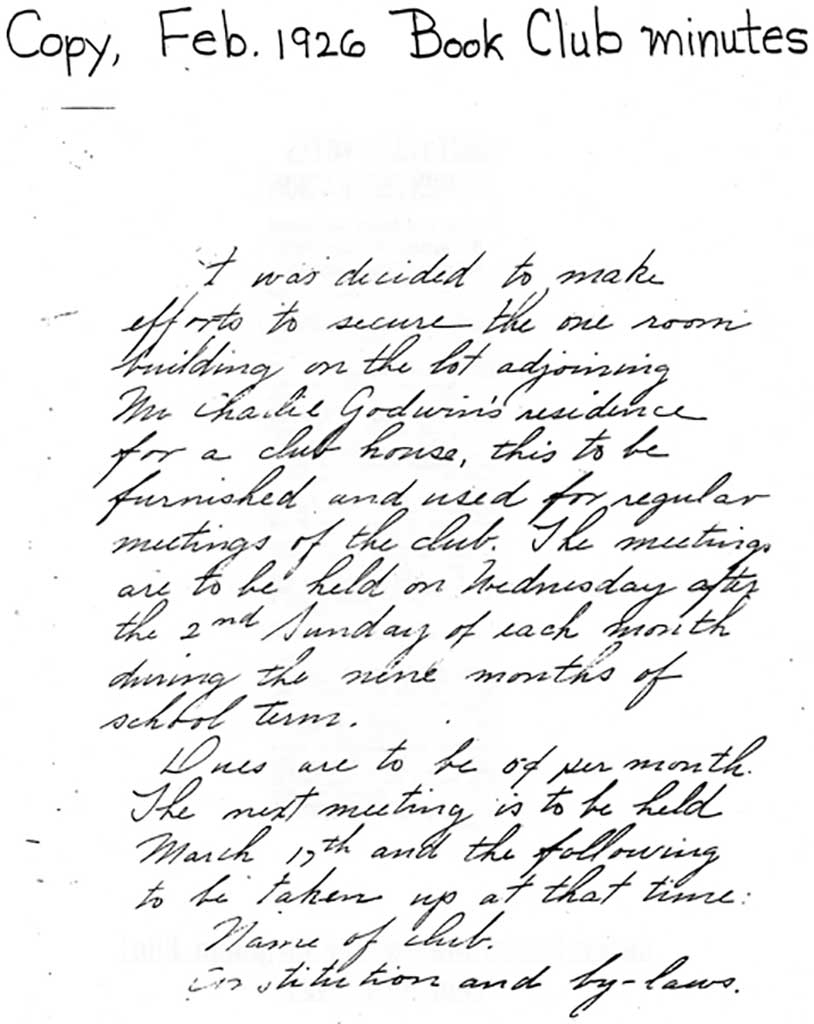 Copy, Feb. 1926 Book Club minutes
It was decided to make
efforts to secure the one room
building on the lot adjoining
Mr Charlie Godwin's residence
for a club house, this to be
furnished and used for regular
meetings of the club. The meetings
are to be held on Wednesday after
the 2nd Sunday of each month
during the nine months of
school term.
Dues are to be per month.
The next meeting is to be held
March 17th and the following
to be taken up at that time:
Name of club.
Constitution and by-laws.